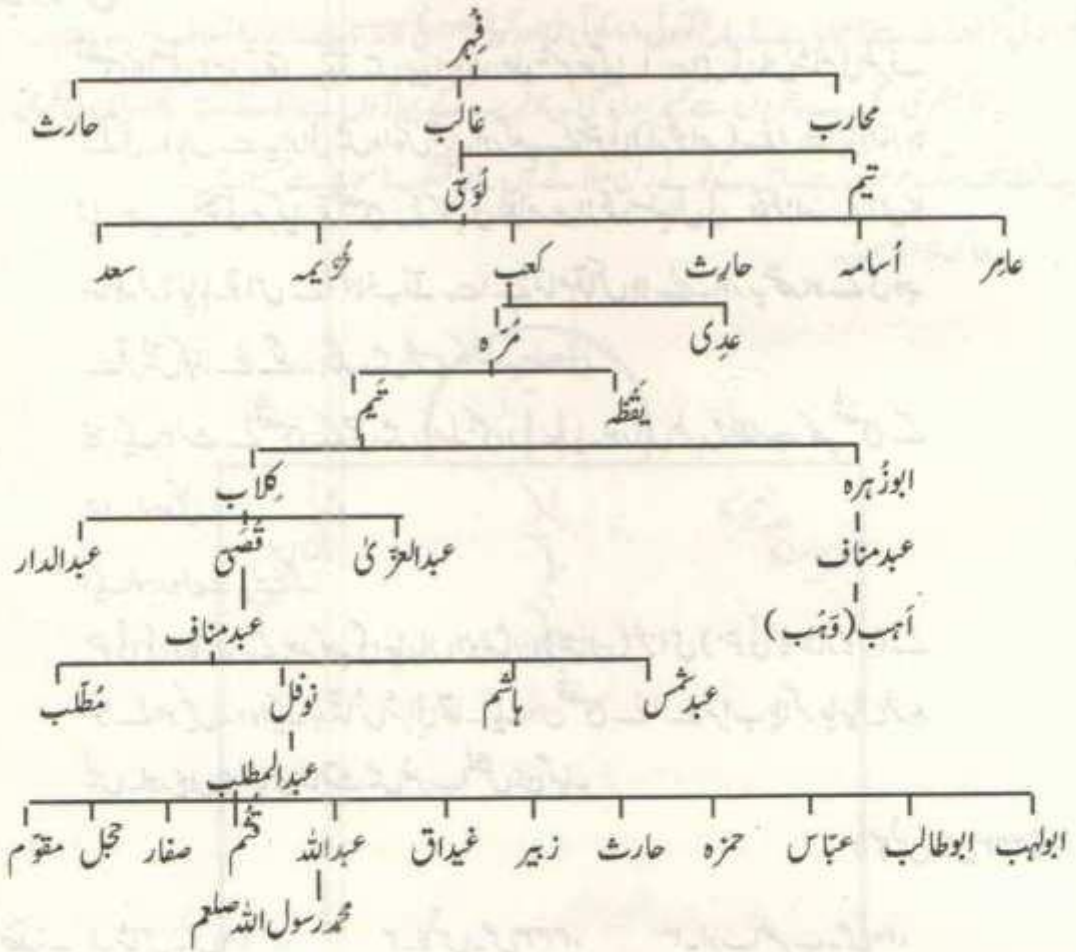 فِہر
محارب غالب حارث
تیم لُوَیّ
عامِر اُسامہ حارِث کعب خُزیمہ سعد
عدِی مُرّہ
یَقُظہ تَیم
ابوزُہرہ کِلاب
عبدمناف عبدالعزّیٰ قُصَیّ عبدالدار
اَہب (وَہُب) عبدمناف
عبدِشمس ہاشم نوفل مُطّلب
عبدالمطلب
ابولہب ابوطالب عبّاس حمزہ حارث زبیر غیداق عبداللہ قُثم صفار حجل مقوّم
محمد رسول اللہ صلعم